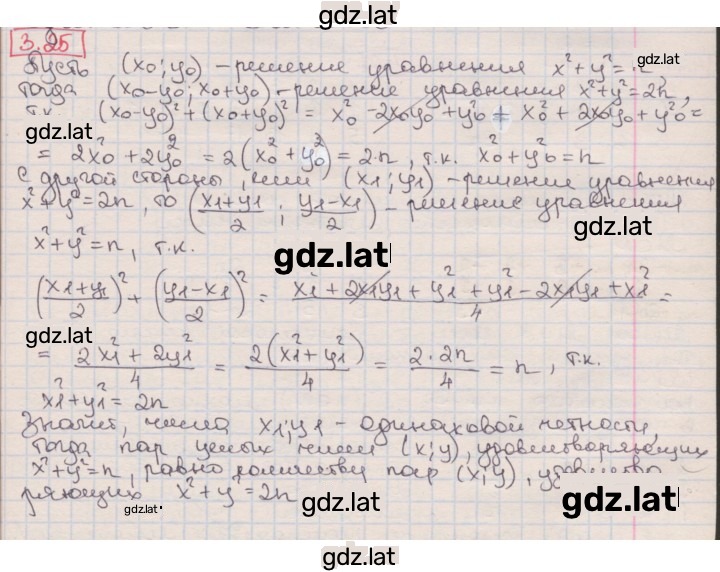 gdz.lat
3.25
Пусть (x₀; y₀) – решение уравнения x² + y² = n, gdz.lat
тогда (x₀-y₀; x₀+y₀) – решение уравнения x²+y²=2n,
т.к. (x₀-y₀)² + (x₀+y₀)² = x₀² - 2x₀y₀ + y₀² + x₀² + 2x₀y₀ + y₀² =
gdz.lat
= 2x₀² + 2y₀² = 2(x₀² + y₀²) = 2·n, т.к. x₀² + y₀² = n
С другой стороны, если (x₁; y₁) – решение уравнения
x² + y² = 2n, то ((x₁+y₁)/2 ; (y₁-x₁)/2) – решение уравнения
gdz.lat gdz.lat
x² + y² = n, т.к.
gdz.lat
((x₁+y₁)/2)² + ((y₁-x₁)/2)² = (x₁² + 2x₁y₁ + y₁² + y₁² - 2x₁y₁ + x₁²)/4 =
gdz.lat gdz.lat
= (2x₁² + 2y₁²)/4 = 2(x₁² + y₁²)/4 = 2·2n/4 = n, т.к.
x₁² + y₁² = 2n
Значит, числа x₁; y₁ – одинаковой четности,
тогда пар целых чисел (x; y), удовлетворяющих
x² + y² = n, равно количеству пар (x; y), удовлетво
ряющих x² + y² = 2n
gdz.lat gdz.lat gdz.lat
gdz.lat